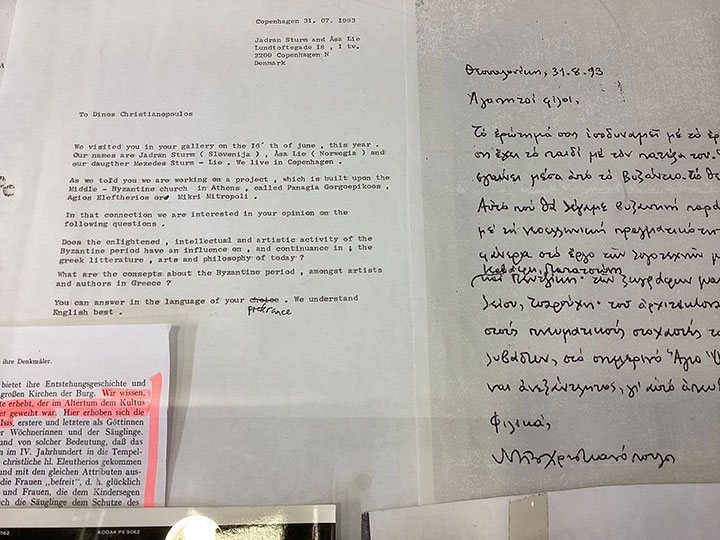 Copenhagen 31. 07. 1993
Jadran Sturm and Åsa Lie
Lundtoftegade 18 , I tv.
2200 Copenhagen N
Denmark
To Dinos Christianopoulos
We visited you in your gallery on the 16´th of june , this year .
Our names are Jadran Sturm ( Slovenija ) , Åsa Lie ( Norwegia ) and
our daugther Mezedes Sturm - Lie . We live in Copenhagen .
As we told you we are working on a project , which is built upon the
Middle - Byzantine church in Athens , called Panagia Gorgoepikoos ,
Agios Eleftherios or Mikri Mitropoli .
In that connection we are interested in your opinion on the
following questions .
Does the enlightened , intellectual and artistic activity of the
Byzantine period have an influence on , and continuance in , the
greek litterature , arts and philosophy of today ?
What are the consepts about the Byzantine period , amongst artists
and authors in Greece ?
You can answer in the language of your choice . We understand
prefrance
English best .
Θεσσαλονίκη, 31.8.93
Ἀγαπητοί φίλοι,
Τό ἐρώτημά σας ἰσοδυναμεῖ μέ τό
ση ἔχει τό παιδί μέ τόν πατέρα του.
βγαίνει μέσα ἀπό τό Βυζάντιο. Τό
Αὐτό πού θά λέγαμε βυζαντινή
μέ τή νεοελληνική
φανερά στό ἔργο τῶν
Καβάφη, Παπατσώνη
καί Πεντζίκη· τῶν ζωγράφων
τοῦ
στούς πνευματικούς στοχαστές
στό σημερινό Ἅγιο
ναι ἀνεξάντλητος, γι' αὐτό
Φιλικά,
ihre Denkmäler.
bietet ihre Entstehungsgeschichte und
großen Kirchen der Burg. Wir wissen,
erhebt, der im Altertum dem Kultus
geweiht war. Hier erhoben sich die
Isis, erstere und letztere als Göttinnen
Wöchnerinnen und der Säuglinge.
und von solcher Bedeutung, daß das
im IV. Jahrhundert in die Tempel-
christliche hl. Eleutherios gekommen
und mit den gleichen Attributen aus-
die Frauen „befreit", d. h. glücklich
und Frauen, die dem Kindersegen
die Säuglinge dem Schutze des
5062
KODAK PX 5062